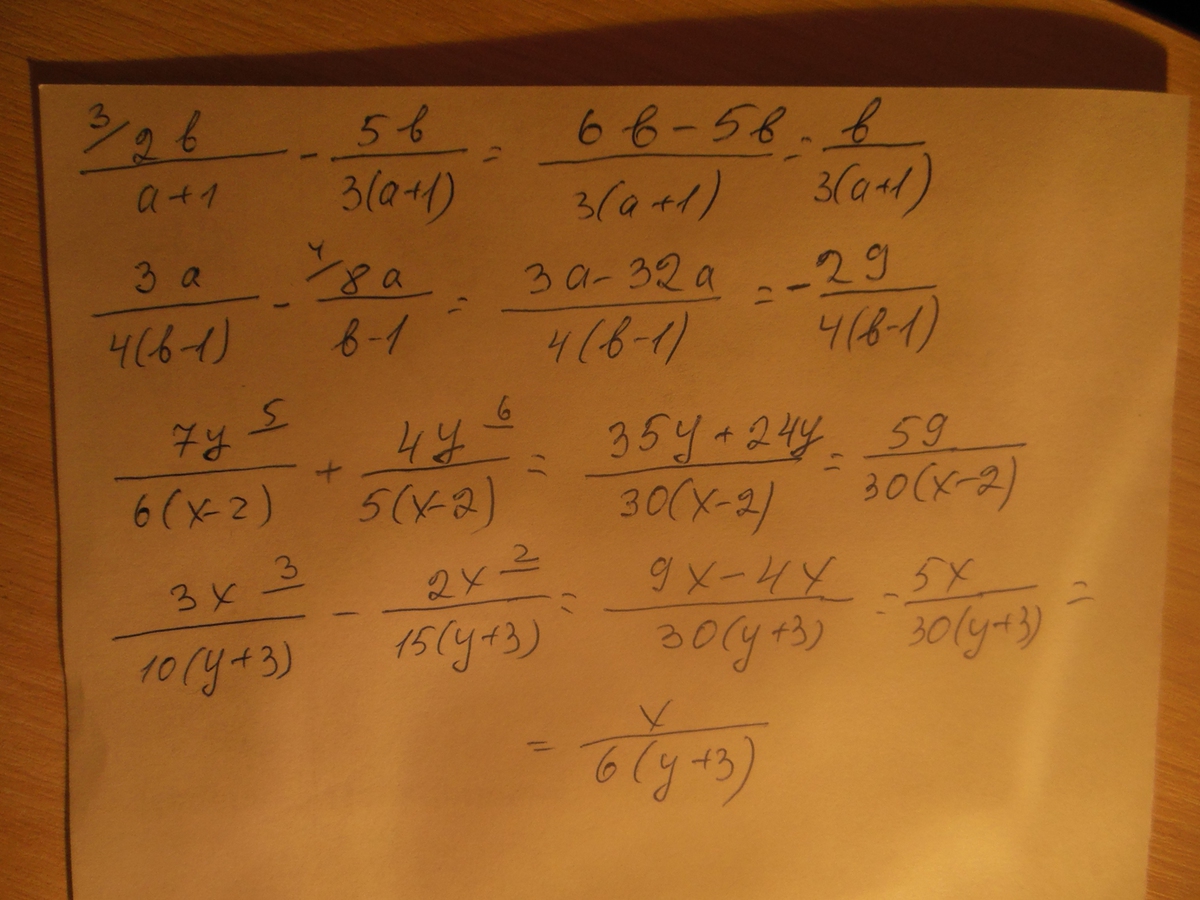 3/ 2в / a+1 - 5в / 3(a+1) = 6в-5в / 3(a+1) = в / 3(a+1)
3a / 4(в-1) - 4/ 8a / в-1 = 3a-32a / 4(в-1) = - 29 / 4(в-1)
7y 5 / 6(x-2) + 4y 6 / 5(x-2) = 35y+24y / 30(x-2) = 59 / 30(x-2)
3x 3 / 10(y+3) - 2x 2 / 15(y+3) = 9x-4x / 30(y+3) = 5x / 30(y+3) =
= x / 6(y+3)